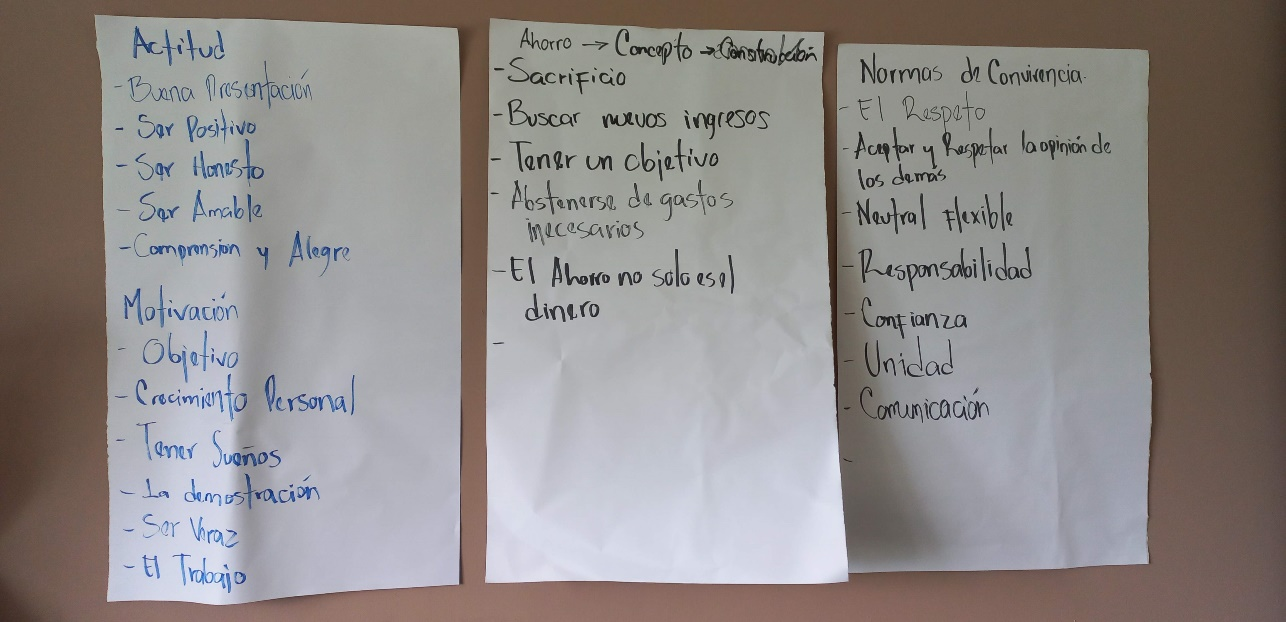 Actitud
- Buena Presentación
- Ser Positivo
- Ser Honesto
- Ser Amable
- Comprension y Alegre
Motivación
- Objetivo
- Crecimiento Personal
- Tener Sueños
- La demostración
- Ser Veraz
- El Trabajo
Ahorro → Concepto →
- Sacrificio
- Buscar nuevos ingresos
- Tener un objetivo
- Abstenerse de gastos
inecesarios
- El Ahorro no solo es el
dinero
-
Normas de Convivencia.
- El Respeto
- Aceptar y Respetar la opinión de
los demás
- Neutral Flexible
- Responsabilidad
- Confianza
- Unidad
- Comunicación
-